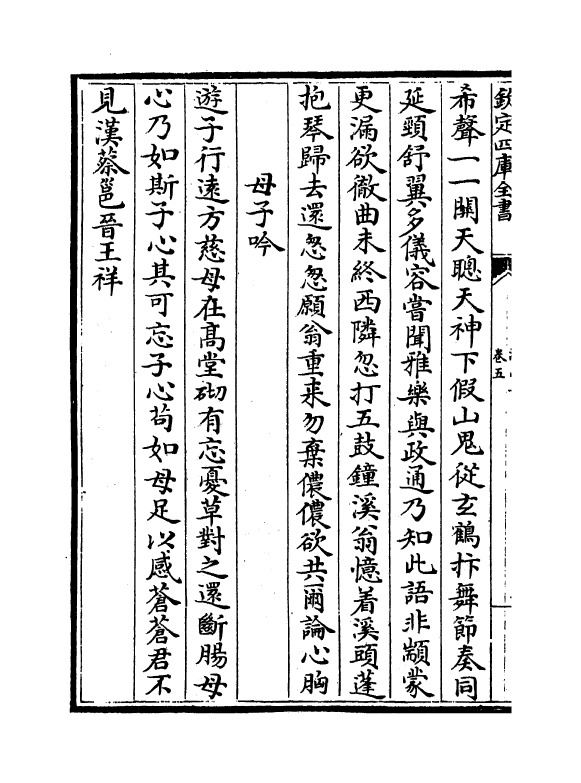 欽定四庫全書
卷五
希聲一一關天聰天神下假山鬼從玄鶴抃舞節奏同
延頸舒翼多儀容嘗聞雅樂與政通乃知此語非顓蒙
更漏欲徹曲未終西隣忽打五鼓鐘溪翁憶着溪頭蓬
抱琴歸去還怱怱願翁重来勿棄儂儂欲共爾論心胸
母子吟
遊子行遠方慈母在髙堂砌有忘憂草對之還斷腸母
心乃如斯子心其可忘子心苟如母足以感蒼蒼君不
見漢蔡邕晉王祥